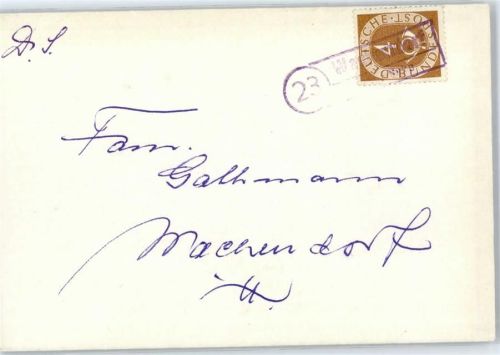 Dr. S.
DEUTSCHE BUNDESPOST
4
23
Fam.
Gathmann
Wachendorf